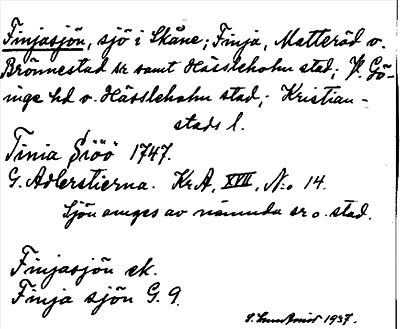 Finjasjön, sjö i Skåne; Finja, Matteröd o.
Brönnestad sr samt Hässleholm stad; V. Gö-
inge hd o. Hässleholm stad; Kristian-
stads l.
Finia Siöö 1747.
G. Adlerstierna. KrA, XVII, N:o 14.
Sjön anges av nämnda sr o. stad.
Finjasjön ek.
Finja sjön G. 9.
1937.